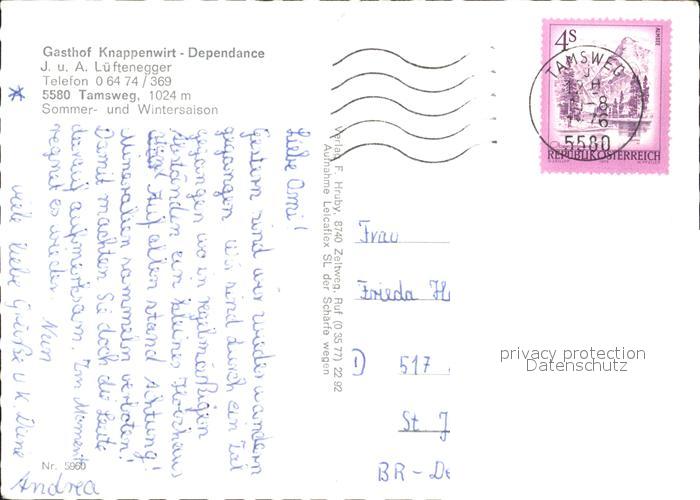 Gasthof Knappenwirt - Dependance
J. u. A. Lüftenegger
Telefon 0 64 74 / 369
5580 Tamsweg, 1024 m
Sommer- und Wintersaison
4 S
ALMSEE
REPUBLIK ÖSTERREICH
TAMSWEG
5580
Liebe Omi!
Gestern sind wir wieder wandern
gegangen. Wir sind durch ein Tal
gegangen wo in regelmäßigen
Abständen ein kleines Holzhaus
Auf allen stand Achtung!
Mineralien sammeln verboten!
Damit machten Sie doch die Leute
darauf aufmerksam. Im Moment
regnet es wieder. Nun
viele liebe Grüße u K Deine
Andrea
Verlag F. Hruby, 8740 Zeltweg, Ruf (0 35 77) 22 92
Aufnahme Leicaflex SL der Schärfe wegen
Frau
Frieda H
D 517
St J
BR - De
Nr. 5960
privacy protection
Datenschutz